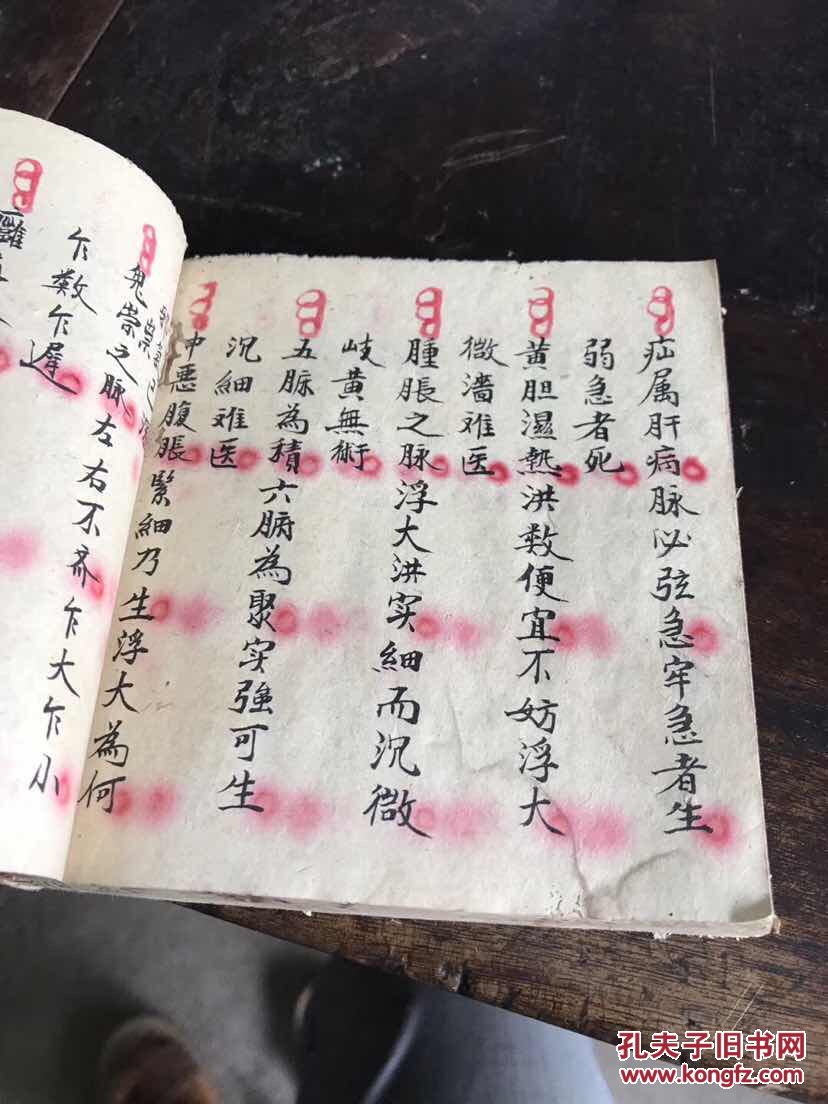 疝属肝病脉必弦急牢急者生
弱急者死
黄胆濕热洪数便宜不妨浮大
微濇难医
腫脹之脉浮大洪实细而沉微
岐黄無術
五脏為積六腑為聚实強可生
沉細难医
中悪腹脹緊細乃生浮大為何
鬼祟之脉左右不齐乍大乍小
乍数乍遲
孔夫子旧书网
www.kongfz.com